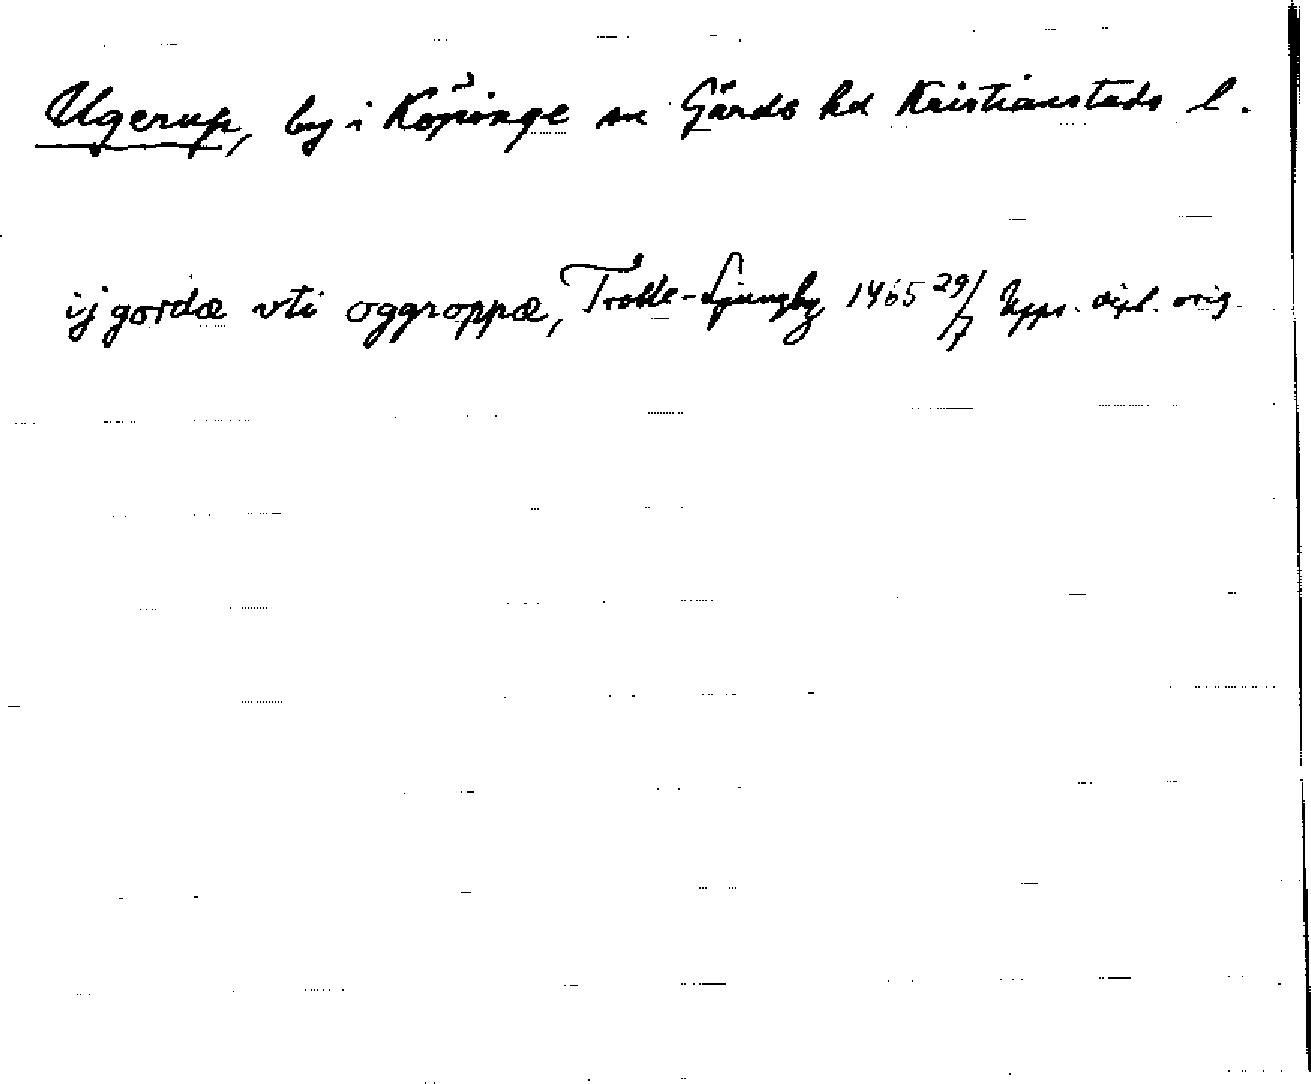 Ugerup, by i Köpinge sn Gärds hd Kristianstads l.
ij gordæ vti oggroppæ, Trolle-Ljungby 1465 29/7 Upps. dipl. orig.